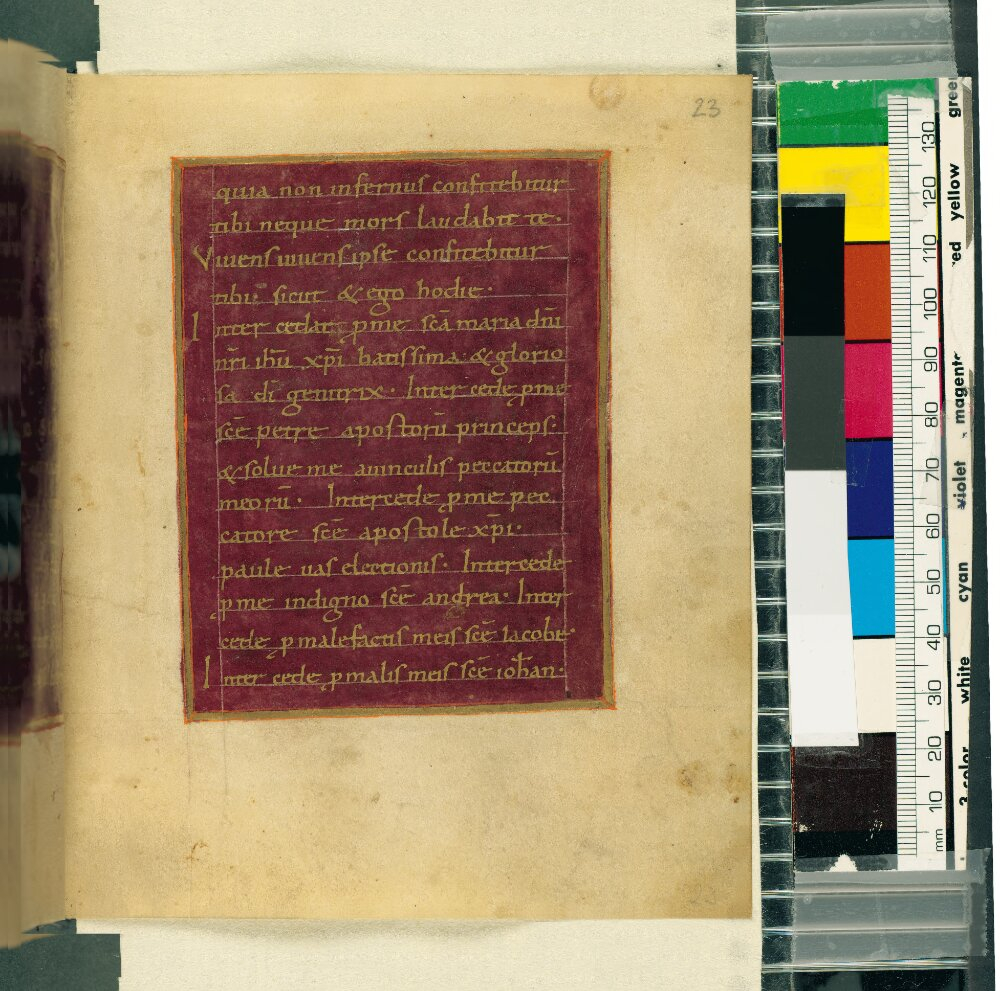 23
quia non infernus confitebitur
tibi neque mors laudabit te·
Viuens uiuens ipse confitebitur
tibi· sicut & ego hodie·
Inter cedat p̱ me sc̄a maria dn̄i
nr̄i ih̄u xp̄i batissima & glorio
sa dī genitrix· Inter cede p̱ me
sc̄e petre apostorū princeps·
& solue me auinculis peccatorū
meorū· Intercede p̱ me pec
catore sc̄e apostole xp̄i·
paule uas electionis· Intercede
p̱ me indigno sc̄e andrea· Inter
cede p̱ malefactis meis sc̄e Iacobe·
Inter cede p̱ malis meis sc̄e ioh̄an·
mm 10 20 30 40 50 60 70 80 90 100 110 120 130
3-color white cyan violet magenta red yellow green